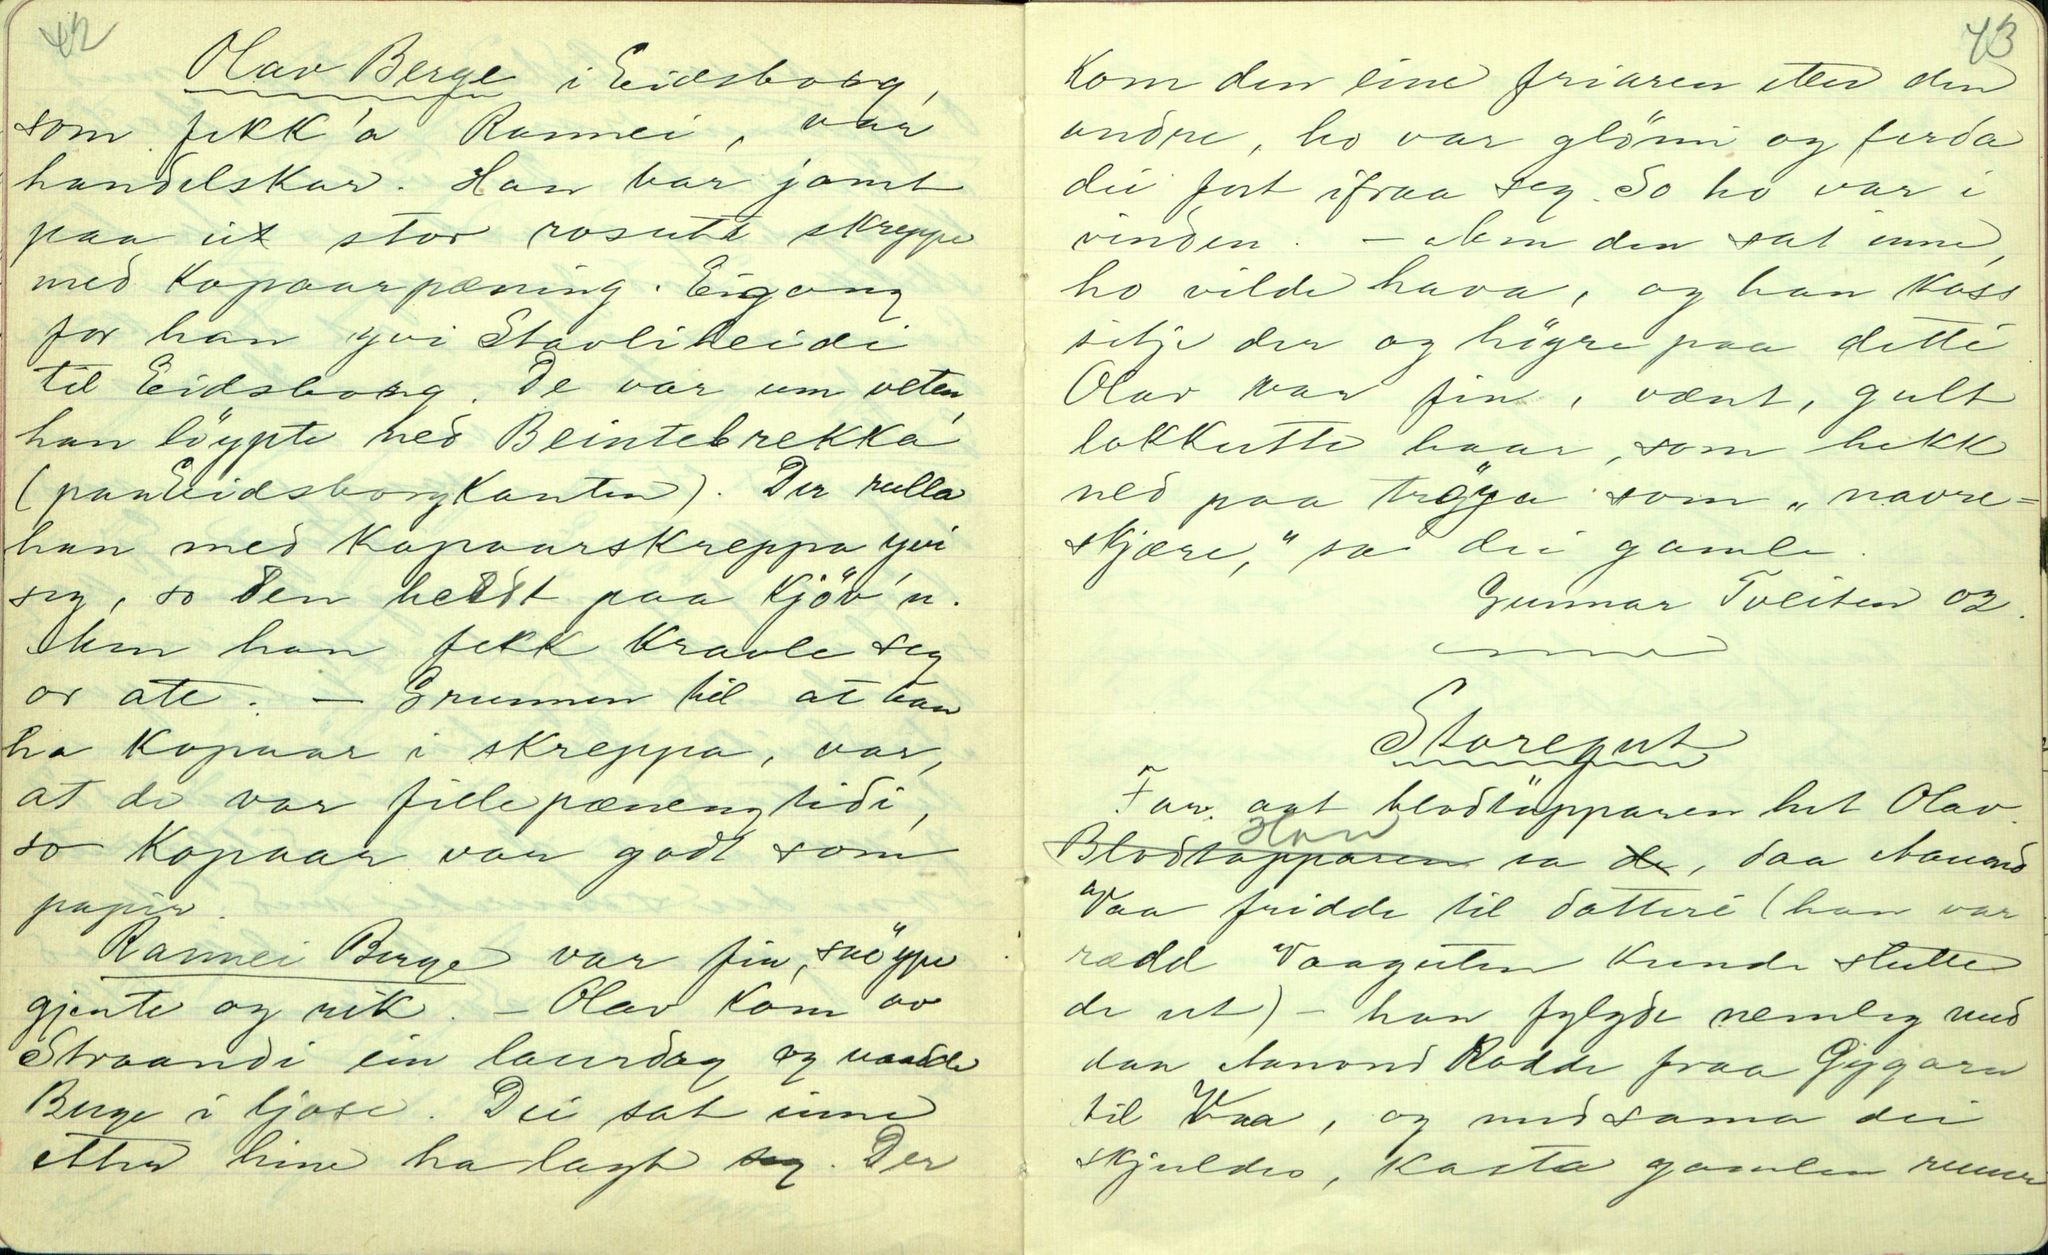 42
Olav Berge i Eidsborg,
som fekk'a Rannei, var
handelskar. Han bar jamt
paa ei stor rosutt skreppe
med Kopaarpæning. Eigong
for han yvi Stavliheidi
til Eidsborg. De var um veten,
han löypte ned Beintebrekka
(paa Eidsborgkanten). Der rulla
han med Kopaarskreppa yvi
seg, so den heldt paa kjöv'n.
Men han fekk kravle seg
or ate. — Grunnen til at han
ha Kopaar i skreppa, var,
at de var fillepæningtidi,
so Kopaar var godt som
papir.
Rannei Berge var fin, snöypi
gjente og rik. — Olav kom av
Straandi ein laurdag og naadde
Berge i ljose. Dei sat inne
etter hine ha lagt seg. Der
43
Kom den eine friaren etter den
andre, ho var glömi og ferda
dei fort ifraa seg. So ho var i
vinden. — Men den sat inne,
ho vilde hava, og han kass
sitje der og högre paa detté
Olav var fin, vænt, gult
lokkutte haar, som hekk
ned paa tröya som „navre=
skjære,“ sa dei gamle.
Gunnar Tveiten 02.
Storegut
Far aat blodtapparen het Olav.
Blodtapparen Han sa de, daa Aamund
Vaa fridde til dotteré (han var
rædd Vaaguten kunde slutte
de ut) – han fylgde nemleg med
daa Aamond Rodde fraa Gygarn
til Vaa, og med sama dei
skjuldes, kasta gamlen